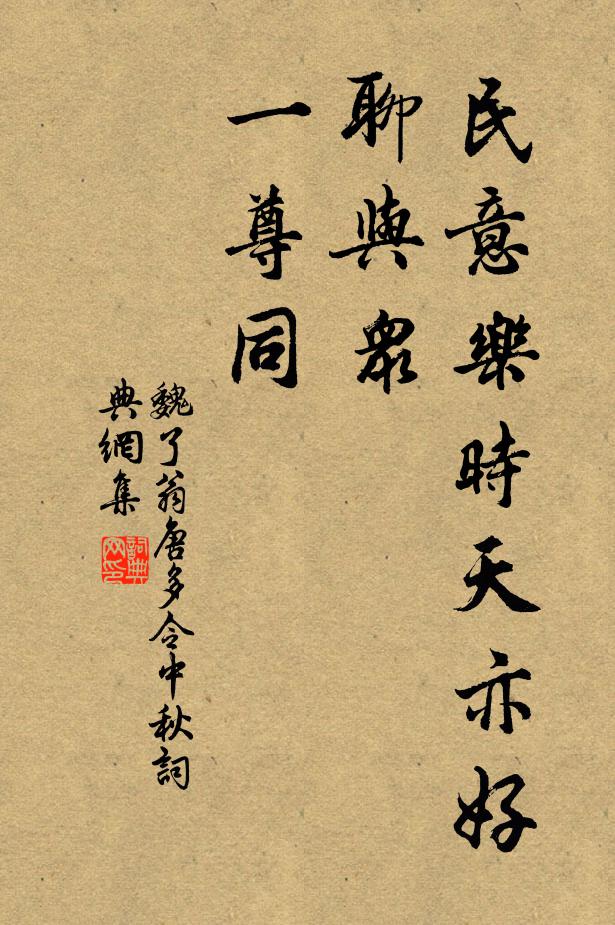 民意樂時天亦好
聊與眾
一尊同
魏了翁唐多令中秋詞
典網集
詞典
网印